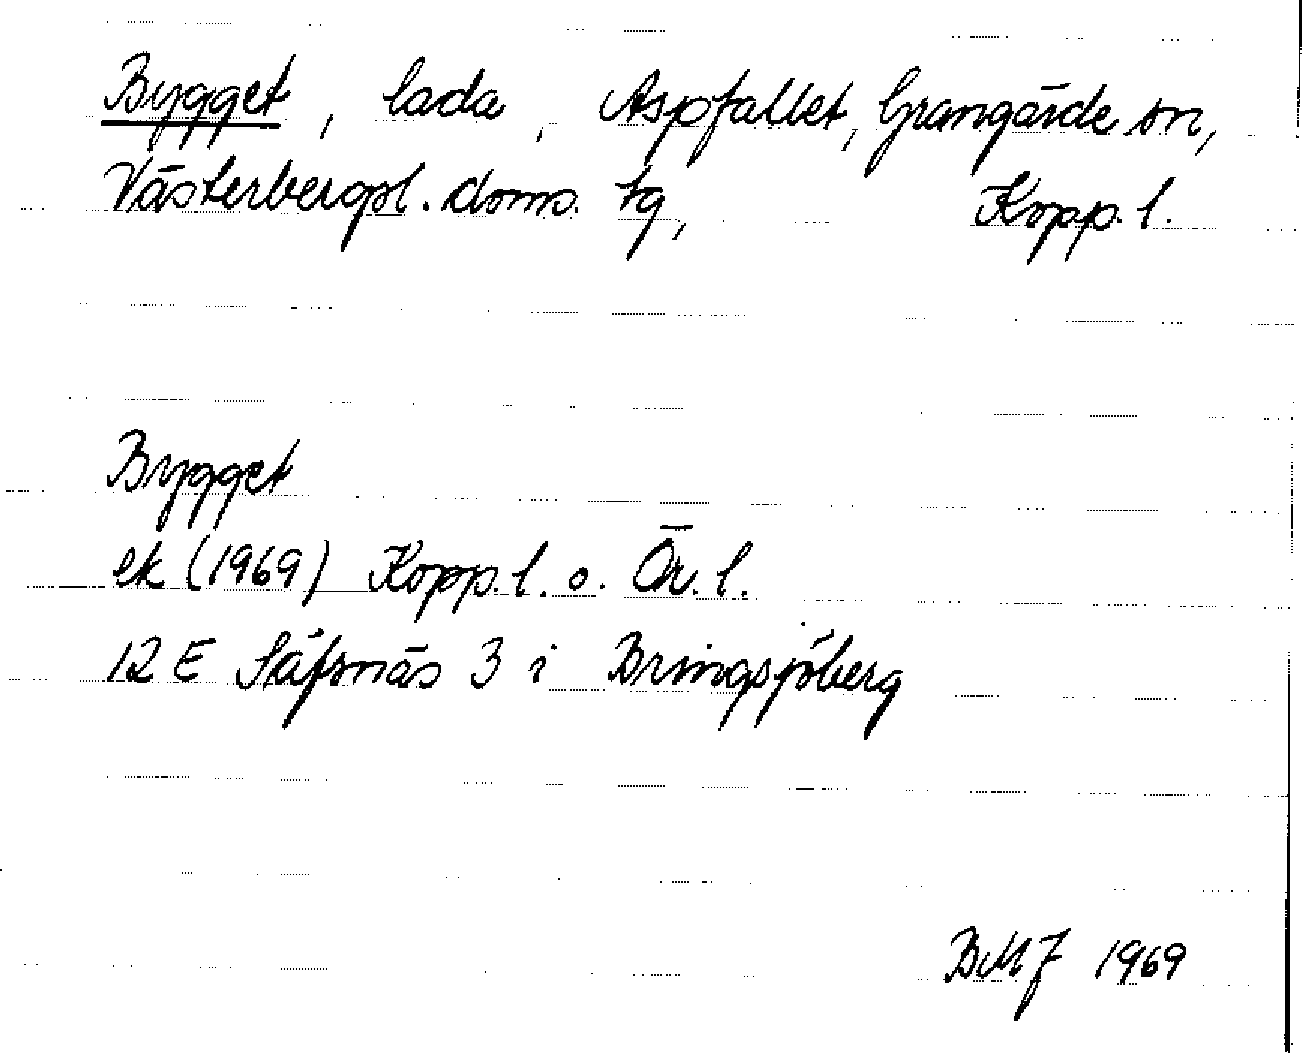 Bygget, lada, Aspfallet, Grangärde sn,
Västerbergsl. doms. tg, Kopp. l.
Bygget
ek (1969) Kopp. l. o. Ör. l.
12 E Säfsnäs 3 i Bringsjöberg
BMJ 1969